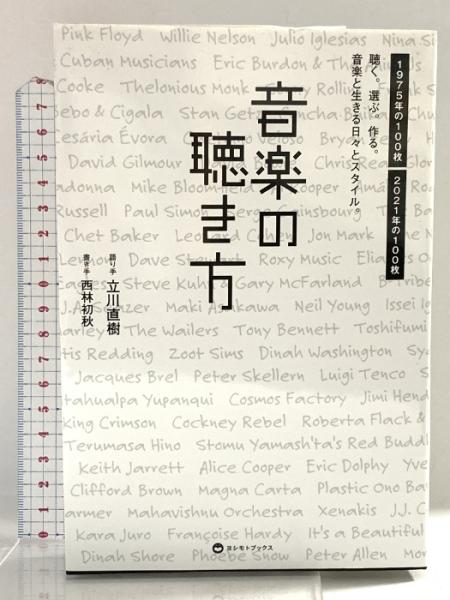 Pink Floyd Willie Nelson Julio Iglesias Nina Si
Cuban Musicians Eric Burdon & The Animals
Cooke Thelonious Monk Rolling Frank S
Bebo & Cigala Stan Getz Concha B
Cesária Évora Veloso Bryan
David Gilmour Chris Rea
adonna Mike Bloomfield Cooper
Russell Paul Simon Serge Gainsbourg
Chet Baker Leonard Cohen Jon Mark The N
Lennon Dave Stewart Roxy Music
Steve Kuhn Gary McFarland B-Tribe
J.A. Seazer Maki Asakawa Neil Young Issei
Marley The Wailers Tony Bennett Toshifumi
Otis Redding Zoot Sims Dinah Washington Sy
Jacques Brel Peter Skellern Luigi Tenco S
tahualpa Yupanqui Cosmos Factory Jimi Hend
king Crimson Cockney Rebel Roberta Flack &
Terumasa Hino Stomu Yamash'ta's Red Budd
Keith Jarrett Alice Cooper Eric Dolphy Yve
Clifford Brown Magna Carta Plastic Ono Ba
armer Mahavishnu Orchestra Xenakis J.J. C
Kara Juro Françoise Hardy It's a Beautiful
Dinah Shore Phoebe Snow Peter Allen Mor
1975年の100枚
2021年の100枚
聴く。選ぶ。作る。
音楽と生きる日々とスタイル。
音楽の
聴き方
語り手 立川直樹
書き手 西林初秋
ヨシモトブックス
0 1 2 3 4 5 6 7 8